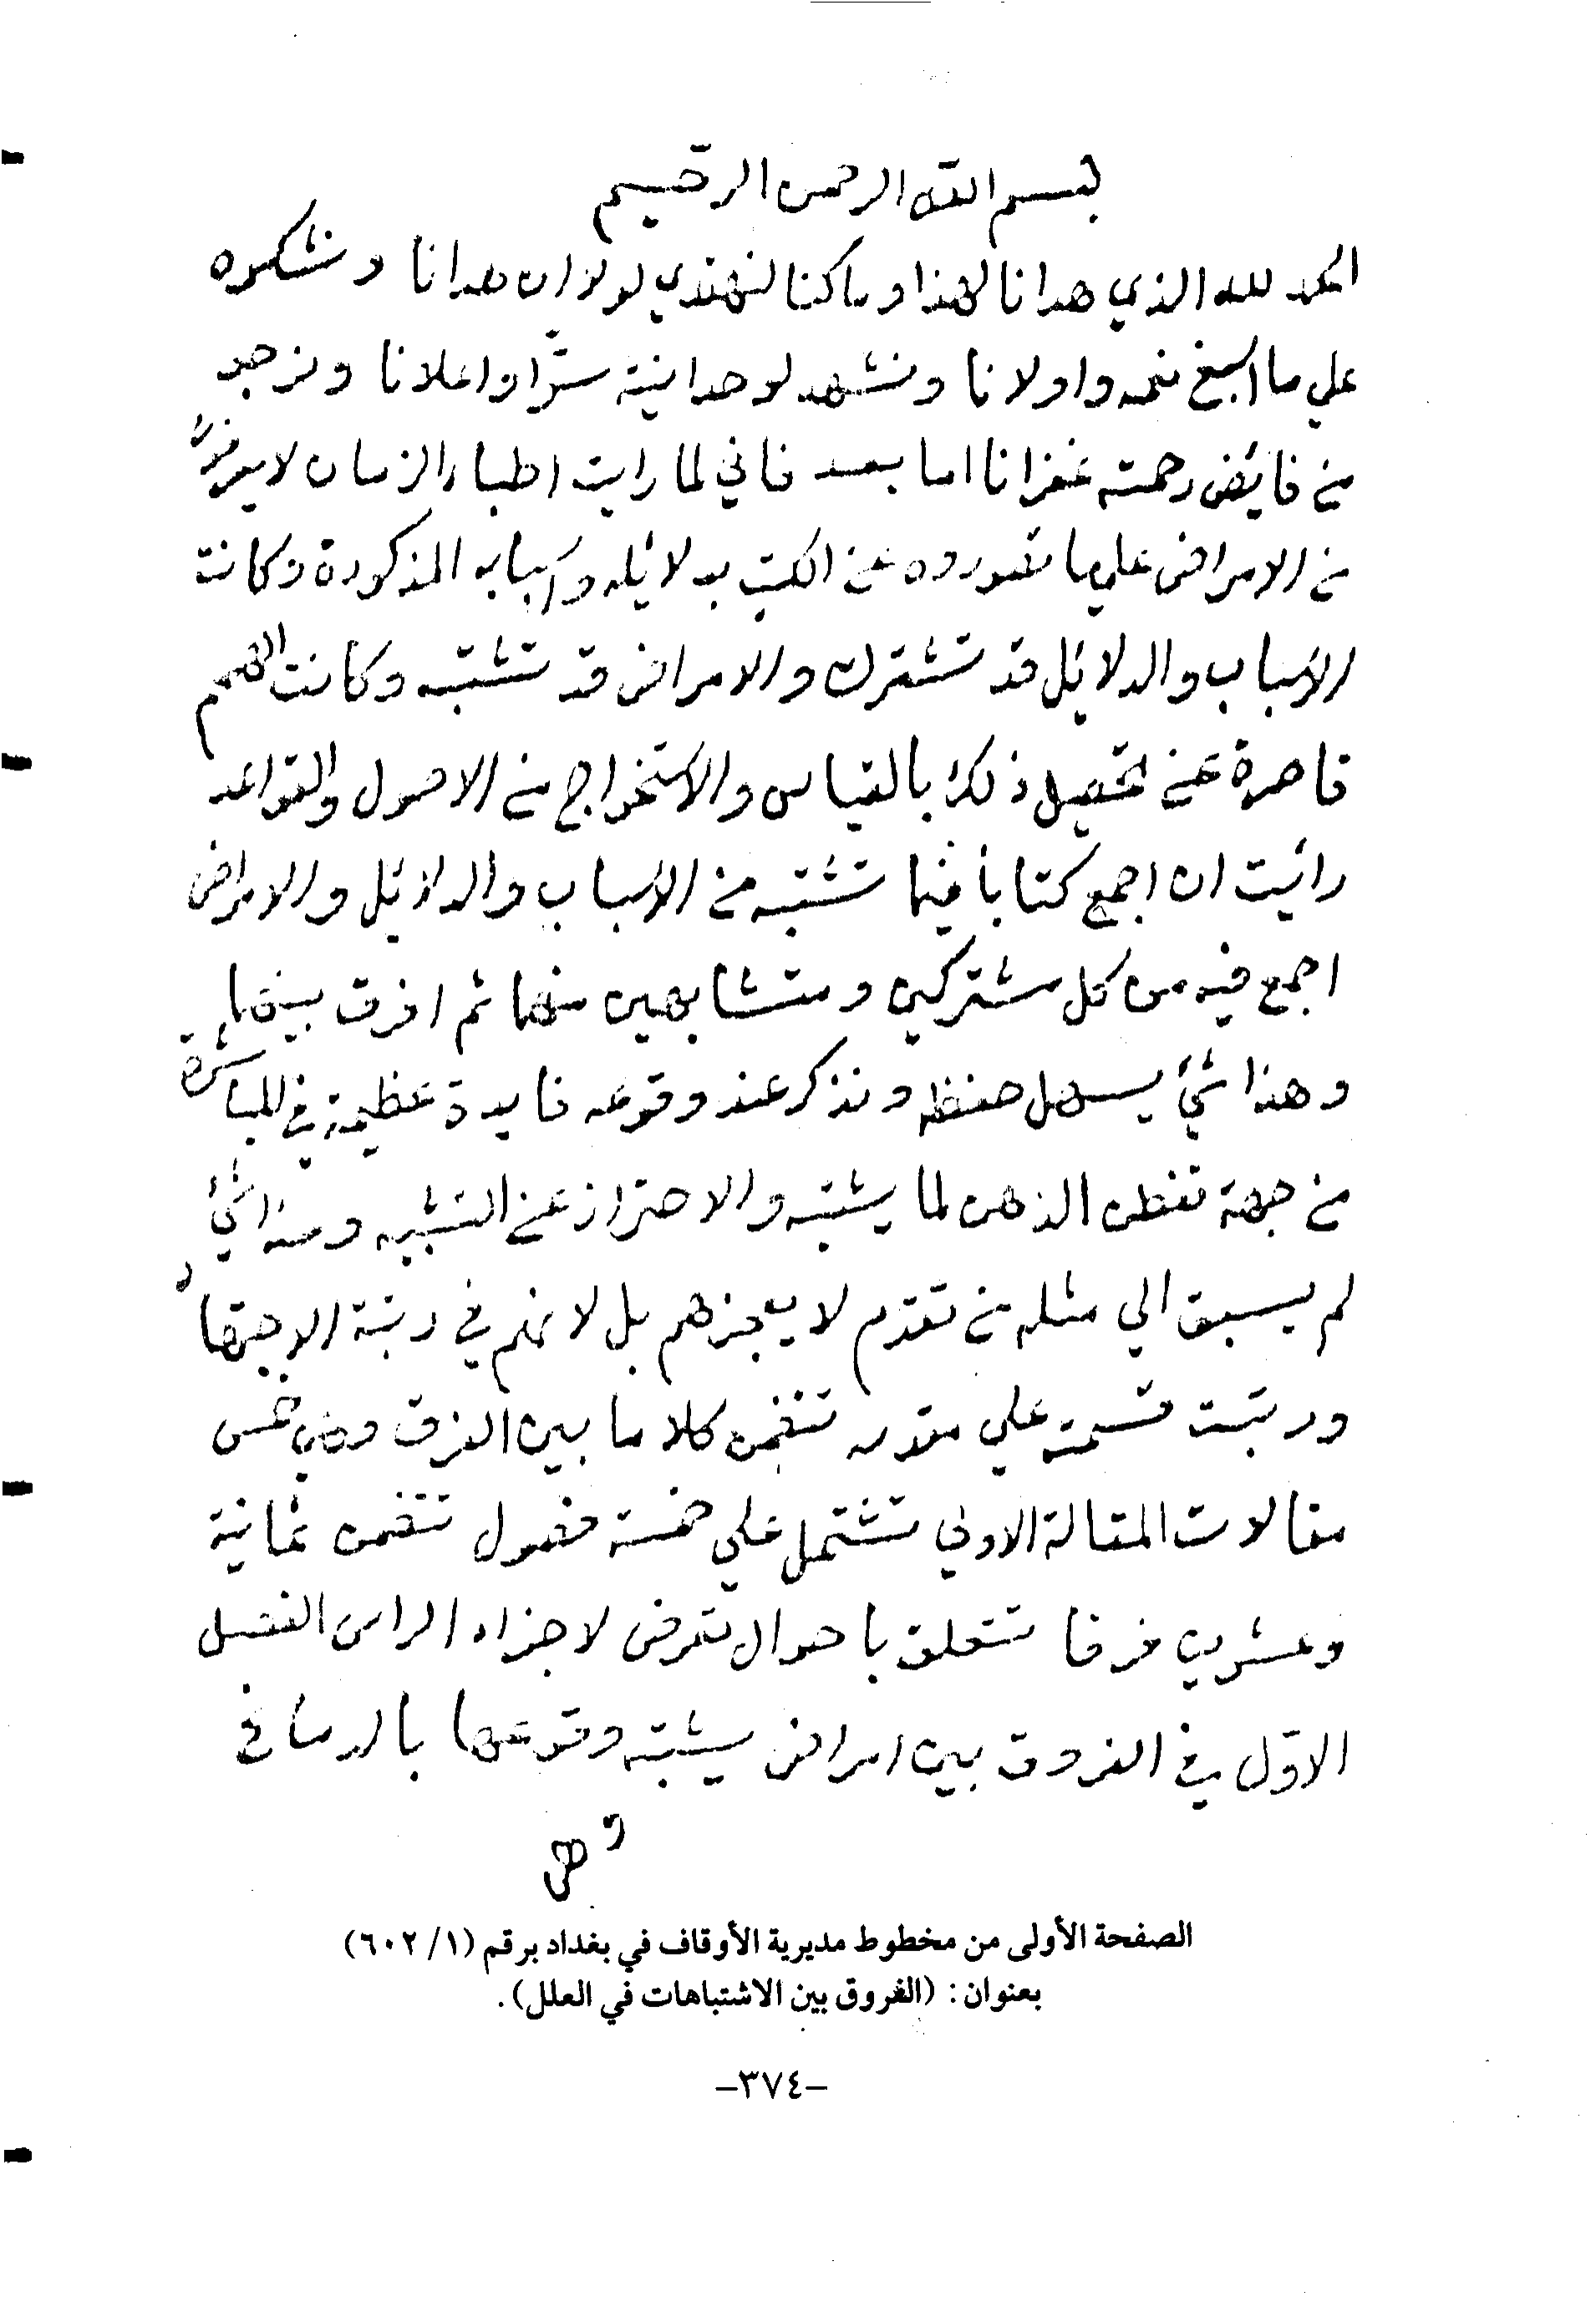 بسم الله الرحمن الرحيم
الحمد لله الذي هدانا لهذا وما كنا لنهتدي لولا ان هدانا ونشكره
علي ما اسبغ نعمه واولانا ونشهد لوحدانيته سرّا واعلانا ونرجو
من فايض رحمته غفرانا اما بعد فاني لما رايت اطباء الزمان لا يعرفون
من الامراض علي ما تصوروه عن الكتب بدلائله واسبابه المذكورة وكانت
الاسباب والدلائل قد تشترك والامراض قد تشتبه وكانت الهمم
قاصرة عن تحصيل ذلك بالقياس والاستخراج من الاصول والقواعد
رائيت ان اجمع كتاباً فيما تشتبه من الاسباب والدلائل والامراض
اجمع فيه من كل مشتركين ومتشابهين منهما ثم افرق بينهما
وهذا شئ يسهل حفظه ونذكر عند وقوعه فايدة عظيمة في المباشرة
من جهة تفطن الذهن لما يشتبه والاحتراز عن التشبيه وهذا شئ
لم يسبق الي مثله من تقدم لا يعجزهم بل لانهم في رتبة الاجتهاد
ورتبت قسمته علي تتضمن كلاما بين الفرق وهي خمس
مقالات المقالة الاولي تشتمل علي خمسة فصول تتضمن ثمانية
وعشرين فرقا تتعلق باحوال تعرض لاجزاء الراس الفصل
الاوّل في الفروق بين امراض يشتبه وقوعها بالدماغ
وهي
الصفحة الأولى من مخطوط مديرية الأوقاف في بغداد برقم (٦٠٢/١)
بعنوان: (الفروق بين الاشتباهات في العلل).
-٣٧٤-